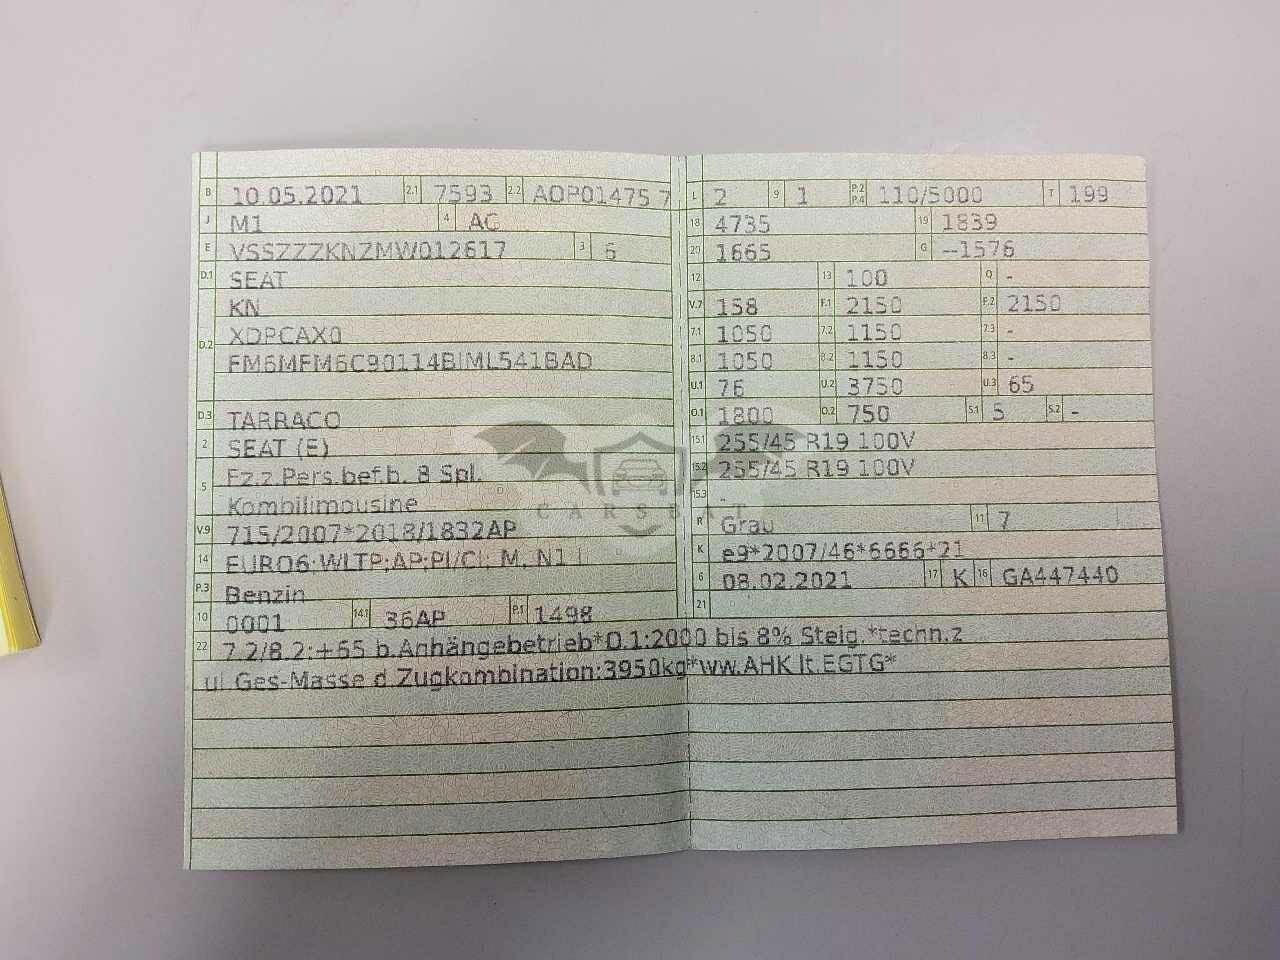 B 10.05.2021 2.1 7593 2.2 AOP01475 7
J M1 4 AC
E VSSZZZKNZMW012617 3 6
D.1 SEAT
D.2 KN
XDPCAX0
FM6MFM6C90114BIML541BAD
D.3 TARRACO
2 SEAT (E)
5 Fz.z.Pers.bef.b. 8 Spl.
Kombilimousine
V.9 715/2007*2018/1832AP
14 EURO6;WLTP;AP;PI/CI; M, N1 I
P.3 Benzin
10 0001 14.1 36AP P.1 1498
L 2 9 1 P.2 P.4 110/5000 T 199
18 4735 19 1839
20 1665 G --1576
12 13 100 Q -
V.7 158 F.1 2150 F.2 2150
7.1 1050 7.2 1150 7.3 -
8.1 1050 8.2 1150 8.3 -
U.1 76 U.2 3750 U.3 65
O.1 1800 O.2 750 S.1 5 S.2 -
15.1 255/45 R19 100V
15.2 255/45 R19 100V
15.3 -
R Grau 11 7
K e9*2007/46*6666*21
6 08.02.2021 17 K 16 GA447440
21
22 7.2/8.2:+65 b.Anhängebetrieb*O.1:2000 bis 8% Steig.*techn.z
ul Ges-Masse d.Zugkombination:3950kg*ww.AHK lt.EGTG*
CARSBAT